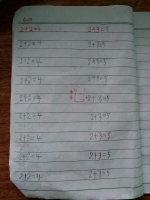 2+2=4 2+3=5
2+2=4 2+3=5
2+2=4 2+3=5
2+2=4 2+3=5
2+2=4 2+3=5
2+2=4 2+3=5
2+2=4 2+3=5
2+2=4 2+3=5
2+2=4 2+3=5